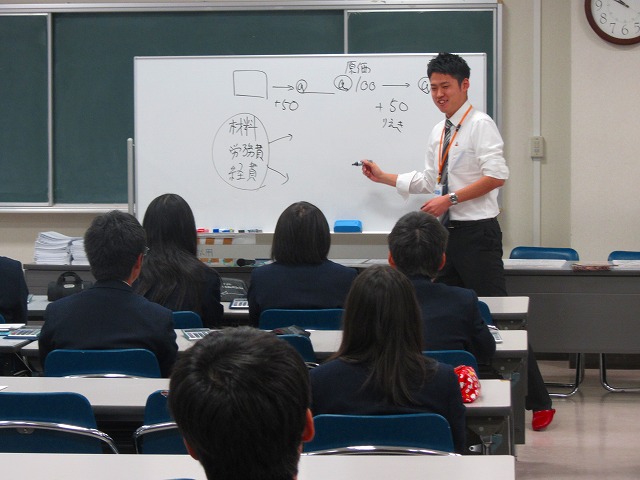 原価
@ @100 @
+50 +50
りえき
材料
労務費
経費